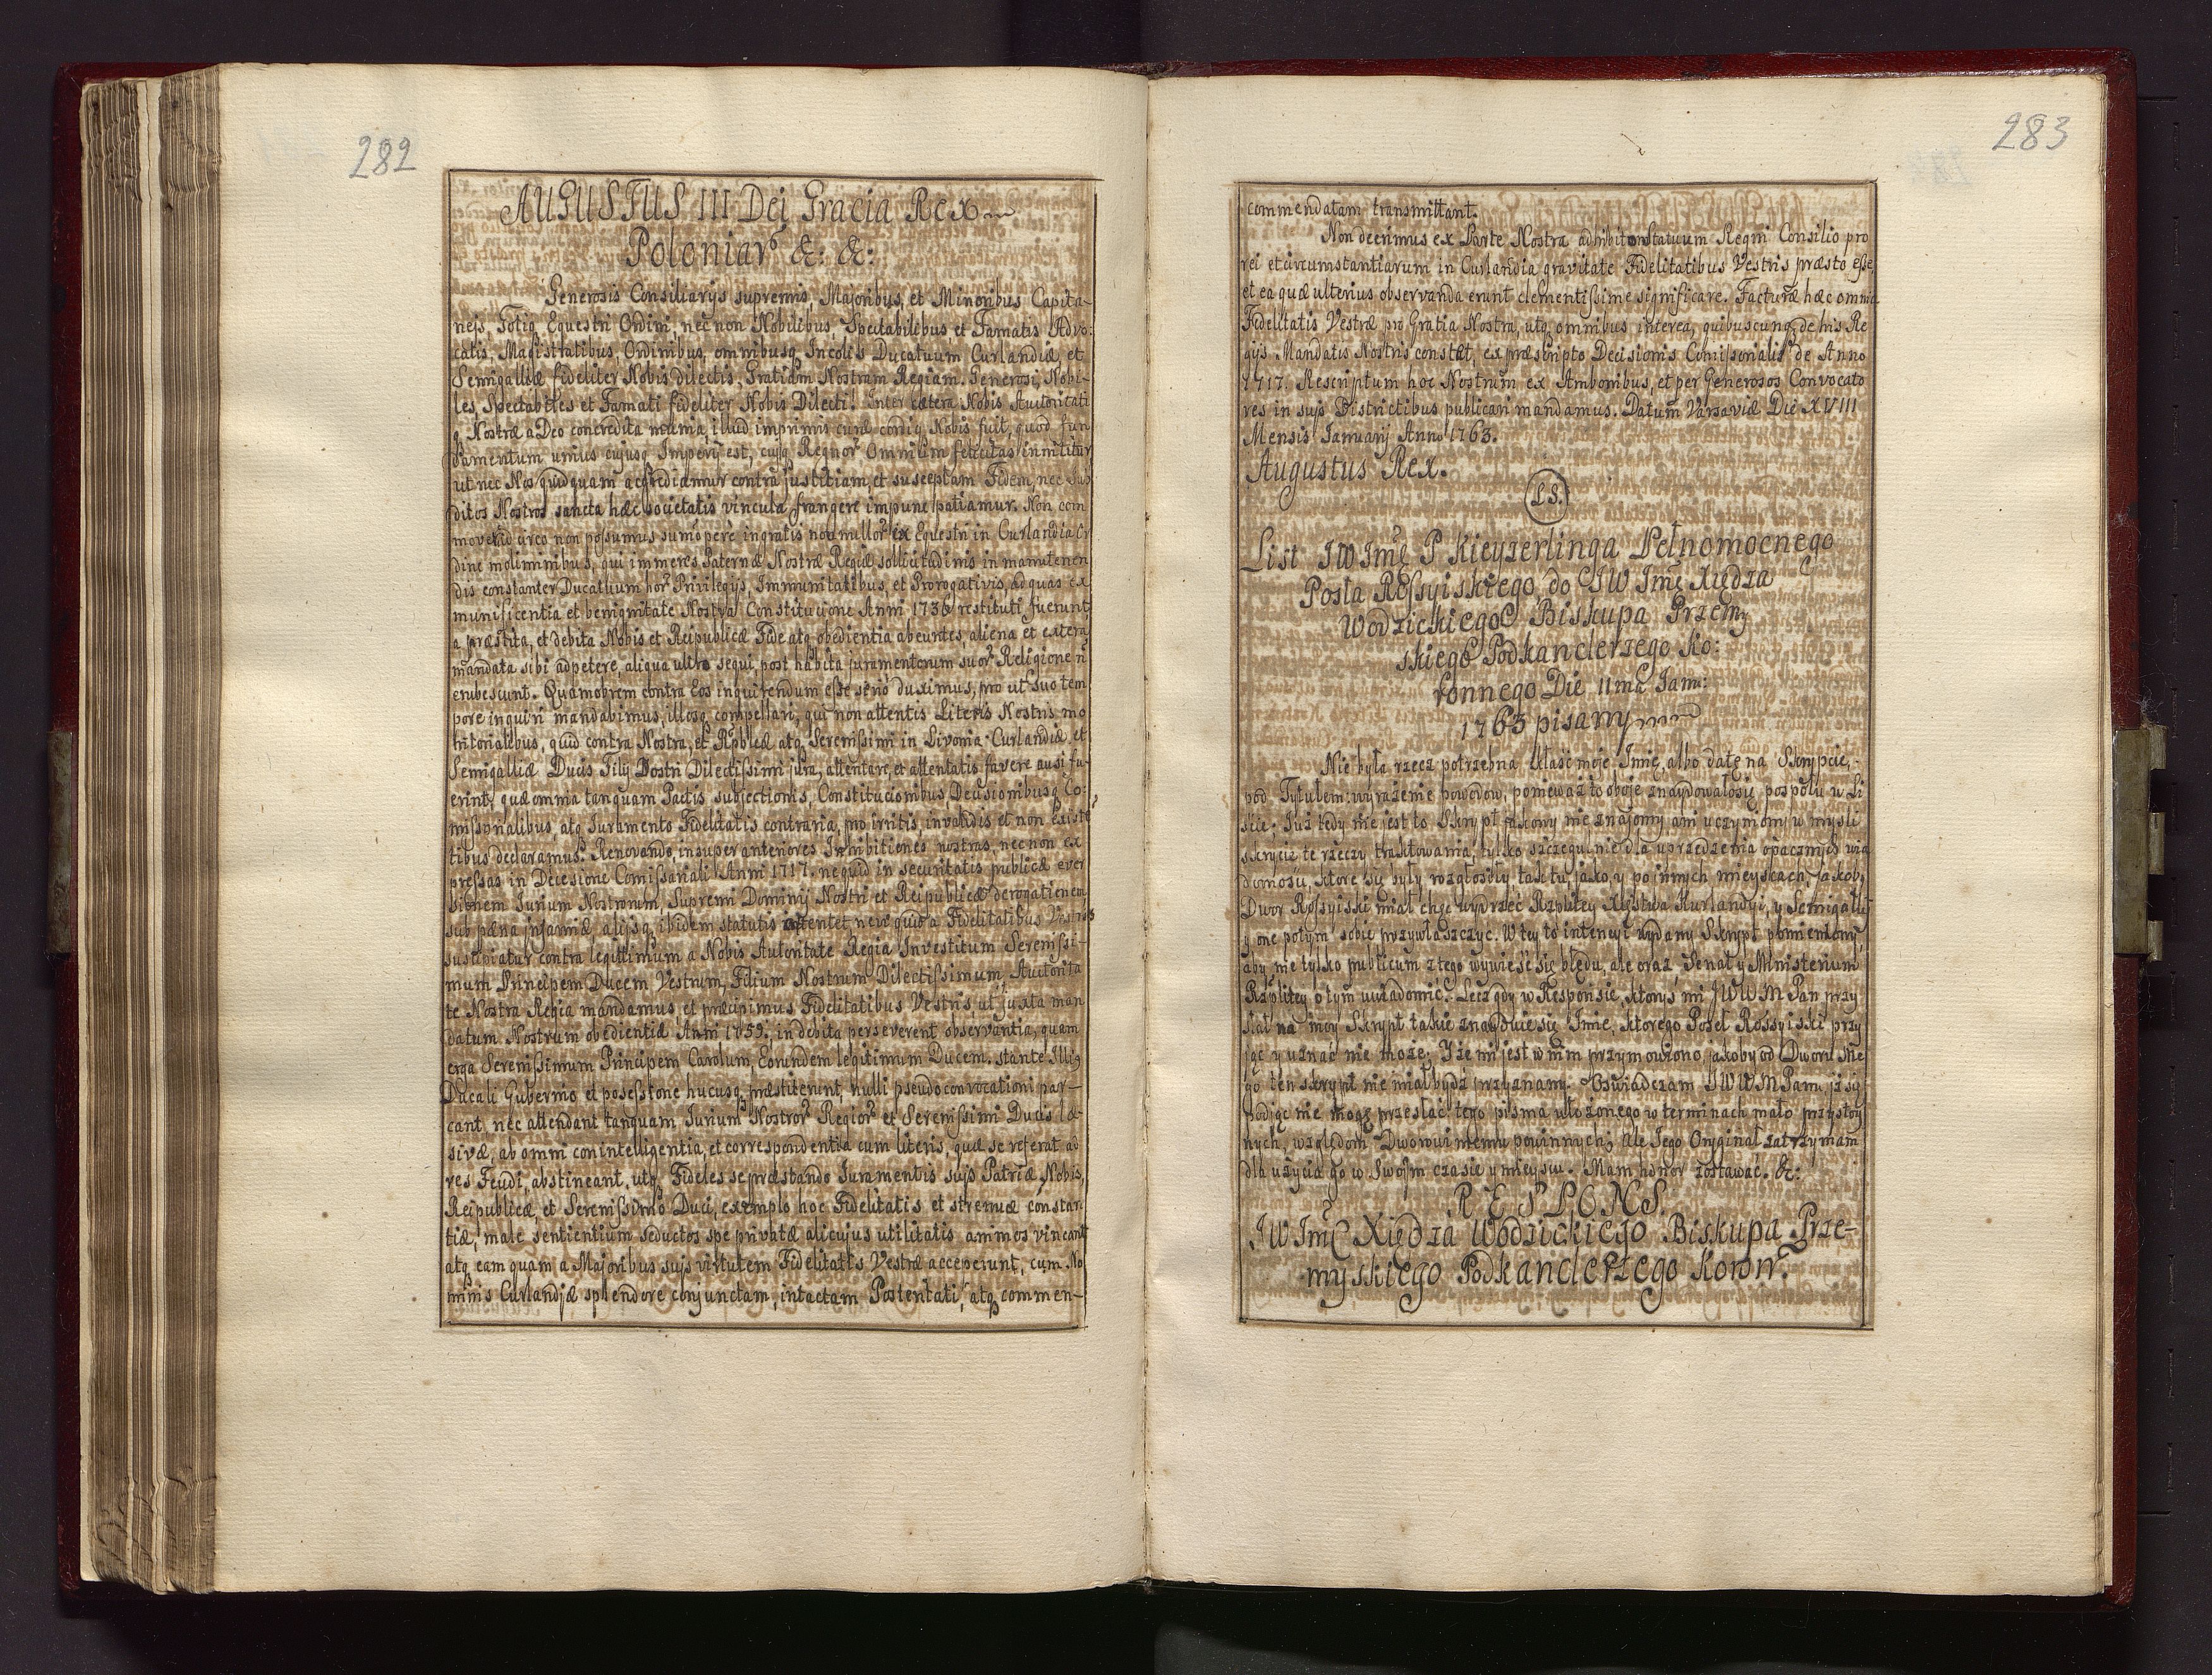 282
AUGUSTUS III Dei Gracia Rex
Poloniar &: &:
Generosis Consiliarijs supremis, Majoribus, et Minoribus Capita-
neis, Totiq Equestri Ordini, nec non Nobilibus, Spectabilibus et Famatis Advo:
catis, Magistratibus, Ordinibus, omnibusq Incolis Ducatuum Curlandiæ, et
Semigalliæ fideliter Nobis dilectis, Gratiam Nostram Regiam. Generosi, Nobi-
les, Spectabiles et Famati fideliter Nobis Dilecti! Inter cætera Nobis Autoritati
q Nostræ a Deo concredita munia, illud imprimis curæ cordiq Nobis fuit, quod fun
damentum unius cujusq Imperij est, cujq Regnor Omnium felicitas innititur
ut nec Nos quidquam aggrediamur contra justitiam, et susceptam Fidem, nec Sub
ditos Nostros sancta hæc societatis vincula frangere impune patiamur. Non com
moveri ergo non possumus sumopere ingratis nonnullor ex Equestri in Curlandia Or
dine moliminibus, qui immeres Paternæ Nostræ Regiæ sollicitudinis in manutenen
dis constanter Ducatuum hor Privilegijs, Immunitatibus, et Prorogativis, ad quas ex
munificentia et benignitate Nostra Constitutione Anni 1736 restituti fuerunt,
a præstita, et debita Nobis et Reipublicæ Fide atq obedientia abeuntes, aliena et extera
mandata sibi adpetere, aliqua ultro sequi, post habita juramentorum suor Religione n
erubescunt. Quamobrem contra Eos inquirendum esse serio duximus, pro ut suo tem
pore inquiri mandabimus, illosq compellari, qui non attentis Literis Nostris mo
nitorialibus, quid contra Nostra, et Rpblcæ atq Serenissimi in Livonia Curlandiæ et
Semigalliæ Ducis Filij Nostri Dilectissimi jura, attentare, et attentatis favere ausi fu-
erint, quæ omnia tanquam Pactis subjectionis, Constitucionibus, Decisionibusq Co:
missorialibus, atq Juramento Fidelitatis contraria, pro irritis, invalidis et non existe
tibus declaramus. Renovando, insuper anteriores Inhibitiones nostras, nec non ex
pressas in Decisione Comissariali Anni 1717. ne quid in securitatis publicæ ever
sionem Jurium Nostrorum, Supremi Dominij Nostri et Reipublicæ derogationem
sub pæna infamiæ alijsq ibidem statutis attentet neve quid a Fidelitatibus Vestris
suscipiatur contra legittimum a Nobis Autoritate Regia Investitum Serenissi-
mum Principem Ducem Vestrum, Filium Nostrum Dilectissimum, Autorita
te Nostra Regia mandamus et præcipimus Fidelitatibus Vestris, ut juxta man
datum Nostrum obedientiæ Anni 1759. in debita perseverent observantia, quam
erga Serenissimum Principem Carolum, Eorundem legitimum Ducem. stante Illiq
Ducali Gubernio et possessione hucusq præstiterunt, nulli pseudoconvocationi par-
cant, nec attendant tanquam Jurium Nostror Regior et Serenissimi Ducis læ-
sivæ, ab omni conintelligentia, et correspondentia cum literis, quæ se referat ad
res Feudi, abstineant, utq Fideles se præstando Juramentis sujs Patriæ Nobis,
Reipublicæ, et Serenissimo Duci, exemplo hoc Fidelitatis et strenuæ constan
tiæ, male sentientium seductos spe privatæ alicujus utilitatis animos vincant
atq eam quam a Majoribus sujs virtutem Fidelitatis Vestræ acceperunt, cum No
minis Curlandiæ splendore conjunctam, intactam Postentati, atq commen-
283
commendatam transmittant.
Non deerimus ex Parte Nostra adhibito Statuum Regni Consilio pro
rei et circumstantiarum in Curlandia gravitate Fidelitatibus Vestris præsto esse
et ea quæ ulterius observanda erunt clementissime significare. Facturæ hæc omnia
Fidelitatis Vestræ pro Gratia Nostra, utq omnibus interea, quibuscunq de his Re
gijs Mandatis Nostris constet, ex præscripto Decisionis Comissorialis de Anno
1717. Rescriptum hoc Nostrum ex Ambonibus, et per Generosos Convocato
res in sujs Districtibus publicari mandamus. Datum Varsaviæ Die XVIII
Mensis Januarij Anno 1763.
Augustus Rex.
LS.
List JW Imę P Kieyzerlinga Pełnomocnego
Posła Rossyiskiego do JW Imę Xiędza
Wodzickiego Biskupa Przemy
skiego Podkanclerzego Ko:
ronnego Die 11ma Janu:
1763 pisany
Nie była rzecz potrzebna kłaść moje Imie, albo datę na Skrypcie,
pod Tytułem: wyrażenie powodow, ponieważ to oboje znaydowało się pospołu w Li
scie. Już tedy nie jest to Skrypt takowy nie znajomy ani uczyniony w mysli
skrycie te rzeczy traktowania, tylko szczegulnie dla uprzedzenia opacznych wia
domosci, ktore się były rozgłosiły, tak tu, jako, y po innych mieyscach, jakoby
Dwor Rossyiski miał chęc wydrzec Rzplitey Xięstwa Kurlandyi, y Semigalli
y one potym sobie przywłaszczyć. W tey to intencyi wydany Skrypt pomieniony,
aby nie tylko publicum z tego wywieść się błędu, ale oraz Senat y Ministerium
Rzplitey o tym uwiadomić. Lecz gdy w Responsie, ktoryś mi JWWM Pan przy
słał na moy Skrypt takie znayduie się Imie, ktorego Poseł Rossyiski przy
jąc y uznać nie może, Y że mi jest w nim przymowiono, jakoby od Dworu Me
go ten skrypt nie miał bydź przyznany. Oswiadczam JWWM Panu, iż sij
podjąc nie mogę przesłać tego pisma ułożonego w terminach mało przystoy
nych, względom Dworowi memu powinnych; ale Jego Oryginał zatrzymam
dla użycia go w Swoim czasie y mieyscu. Mam honor zostawać. &:
RESPONS.
JW Imć Xiędza Wodzickiego Biskupa Prze-
myskiego Podkanclerzego Koron.